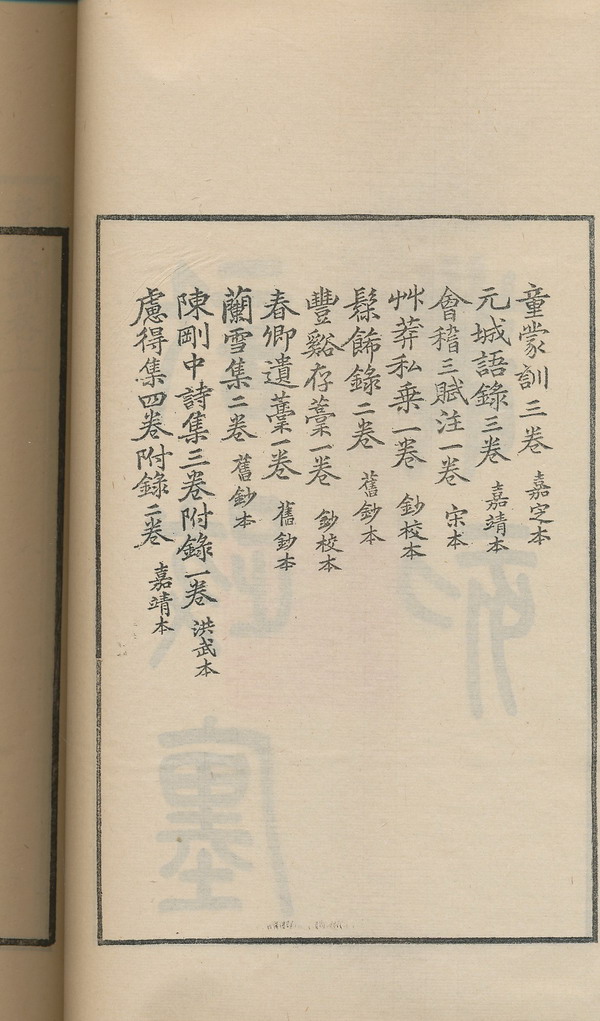 童蒙訓三卷 嘉定本
元城語錄三卷 嘉靖本
會稽三賦注一卷 宋本
艸莽私乗一卷 鈔校本
髹飾錄二卷 舊鈔本
豐谿存藁一卷 鈔校本
春卿遺藁一卷 舊鈔本
蘭雪集二卷 舊鈔本
陳剛中詩集三卷附錄一卷 洪武本
慮得集四卷附錄二卷 嘉靖本